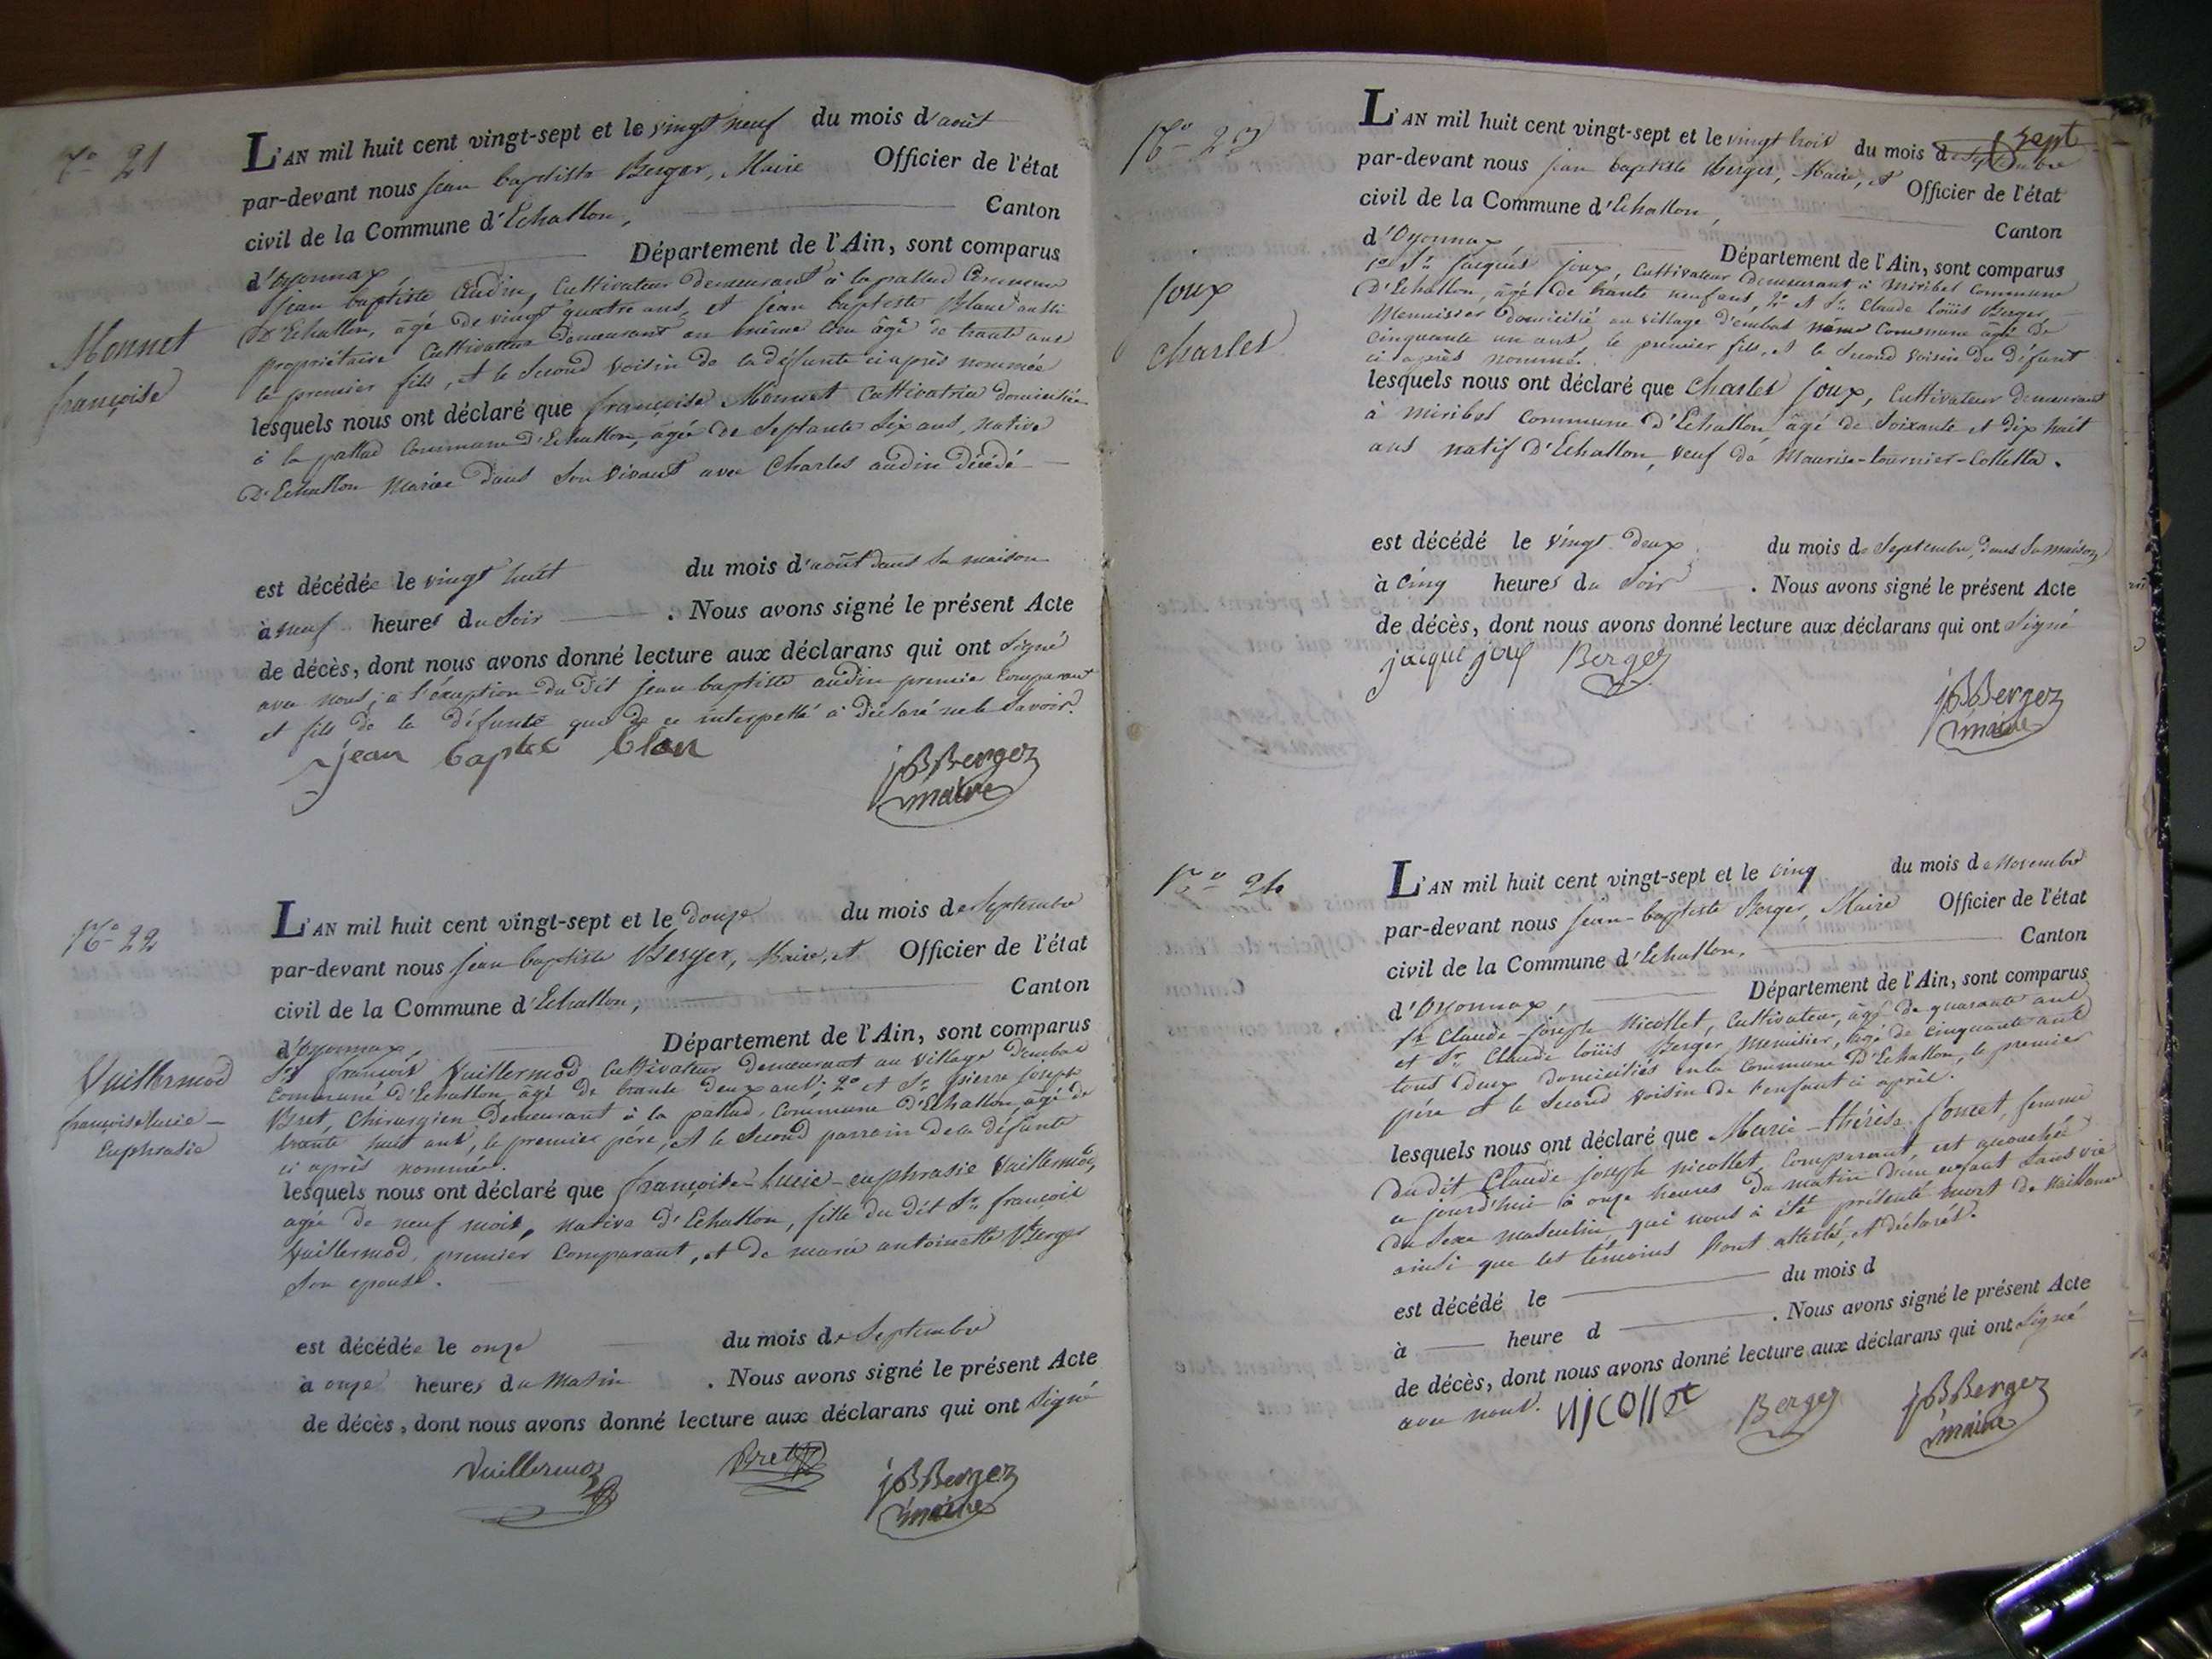 No 21
L'AN mil huit cent vingt-sept et le vingt neuf du mois d'août
par-devant nous jean baptiste Berger, Maire Officier de l'état
civil de la Commune d'Echallon, Canton
d'oyonnax Département de l'Ain, sont comparus
jean baptiste audin, Cultivateur demeurant à la pallud Commune
D'Echallon, âgé de vingt quatre ans, et jean baptiste Blanc aussi
propriétaire Cultivateur demeurant au même lieu âgé de trante ans
le premier fils, et le second voisin de la défunte ci après nommée
Monnet
françoise
lesquels nous ont déclaré que françoise Monnet Cultivatrice domiciliée
à la pallud Commune d'Echallon, âgée de Septante Six ans, native
D'Echallon Mariée dans Son vivant avec Charles audin décédé
est décédée le vingt huit du mois d'août dans sa maison
à neuf heures du Soir . Nous avons signé le présent Acte
de décès, dont nous avons donné lecture aux déclarans qui ont Signé
avec nous, à l'éxception du dit jean baptiste audin premier Comparant
et fils de la défunte que de ce interpellé à déclaré ne le Savoir.
jean baptte blan
jBBerger
maire
No 22
L'AN mil huit cent vingt-sept et le douze du mois de Septembre
par-devant nous jean baptiste Berger, Maire, et Officier de l'état
civil de la Commune d'Echallon, Canton
d'Oyonnax, Département de l'Ain, sont comparus
Sr françois Vuillermod Cultivateur demeurant au village dembat
Commune d'Echallon âgé de trante deux ans; 2o et Sr pierre joseph
Bret, Chirurgien demeurant à la pallud, Commune d'Echallon, agé de
trante huit ans, le premier pére, et le Second parrain de la défunte
ci après nommée.
Vuillermod
françoise Lucie
Euphrasie
lesquels nous ont déclaré que françoise-Lucie-euphrasie Vuillermod,
agée de neuf mois, native d'Echallon, fille du dit Sr françois
Vuillermod, premier Comparant, et de marie antoinette Berger
Son epouse.
est décédée le onze du mois de Septembre
à onze heures du Matin . Nous avons signé le présent Acte
de décès, dont nous avons donné lecture aux déclarans qui ont Signé
Vuillermoz
Bret
jBBerger
maire
No 23
L'AN mil huit cent vingt-sept et le vingt trois du mois de Septembre sept
par-devant nous jean baptiste Berger, Maire, et Officier de l'état
civil de la Commune d'Echallon, Canton
d'Oyonnax Département de l'Ain, sont comparus
1o Sr jacques joux, Cultivateur demeurant à Miribel Commune
D'Echallon, âgé de trante neuf ans, 2o et Sr Claude loüis Berger,
Menuisier domicilié au village d'embat même Commune âgé de
cinquante un ans le premier fils, et le Second voisin du défunt
ci après nommé.
joux
charles
lesquels nous ont déclaré que Charles joux, Cultivateur demeurant
à miribel Commune d'Echallon âgé de Soixante et dix huit
ans natif D'Echallon, veuf de Maurise-tournier-Colletta.
est décédé le vingt deux du mois de Septembre, dans Sa maison
à Cinq heures du Soir . Nous avons signé le présent Acte
de décès, dont nous avons donné lecture aux déclarans qui ont Signé
jacque joux
Berger
jBBerger
maire
No 24
L'AN mil huit cent vingt-sept et le cinq du mois de Novembre
par-devant nous jean-baptiste Berger, Maire Officier de l'état
civil de la Commune d'Echallon, Canton
d'Oyonnax, Département de l'Ain, sont comparus
Sr Claude-joseph Nicollet, Cultivateur, âgé de quarante ans
et Sr Claude loüis Berger, Menuisier, âgé de cinquante ans
tous deux domiciliés en la Commune D'Echallon, le premier
pére et le Second voisin de l'enfant ci après.
lesquels nous ont déclaré que Marie-thérèse poncet, femme
du dit Claude joseph nicollet, Comparant, est accouchée
a jourd'hui à onze heures du matin d'un enfant Sans vie
du Sexe masculin, qui nous à été présenté mort de Naissance
ainsi que les témoins l'ont attestés, et déclarés.
est décédé le du mois d
à heure d . Nous avons signé le présent Acte
de décès, dont nous avons donné lecture aux déclarans qui ont Signé
avec nous.
Nicollet
Berger
jBBerger
maire